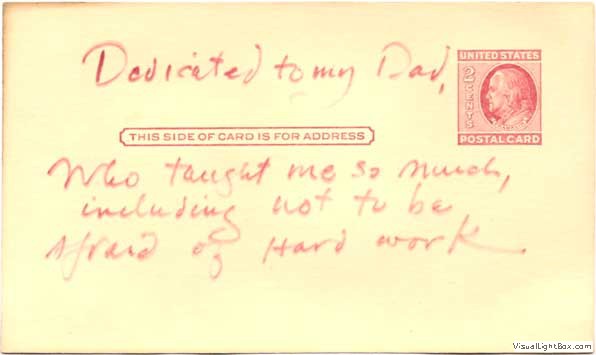 Dedicated to my Dad,
UNITED STATES
2 CENTS
POSTAL CARD
THIS SIDE OF CARD IS FOR ADDRESS
Who taught me so much,
including not to be
afraid of Hard work
VisualLightBox.com